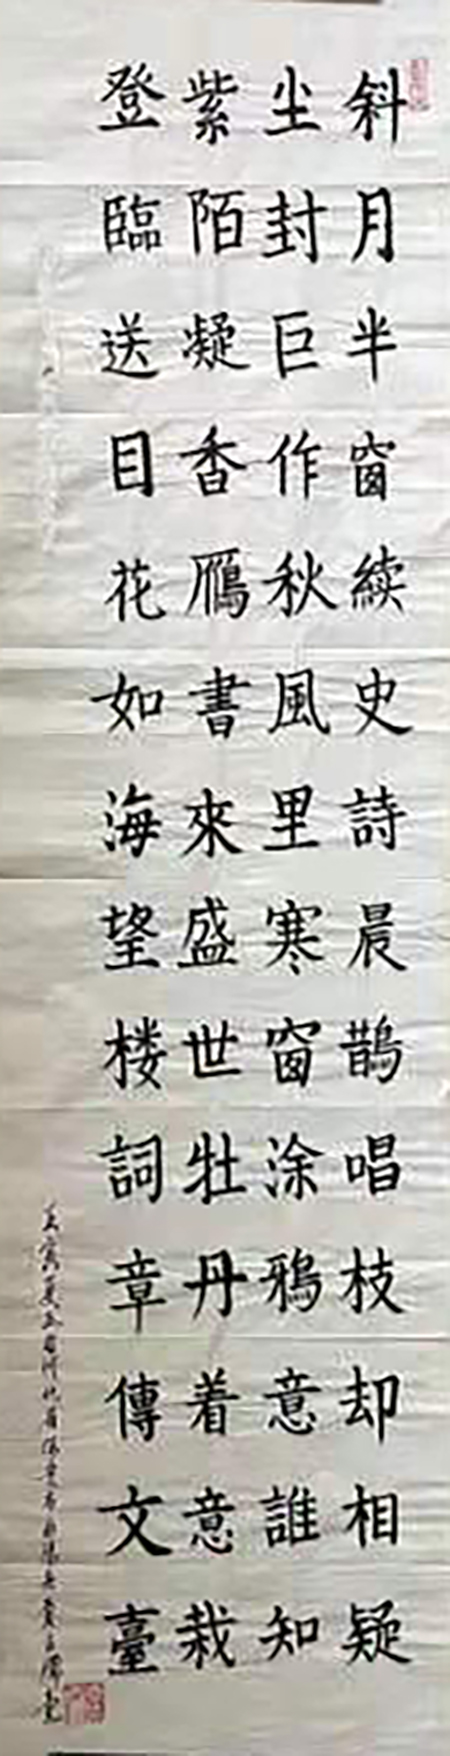 斜月半窗續史詩晨鵲唱枝却相疑
尘封巨作秋風里寒窗涂鴉意誰知
紫陌凝香雁書來盛世牡丹着意栽
登臨送目花如海望楼詞章傳文臺